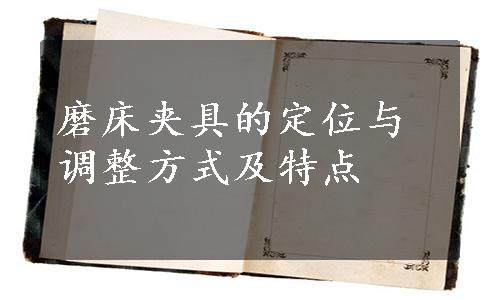 磨床夹具的定位与
调整方式及特点